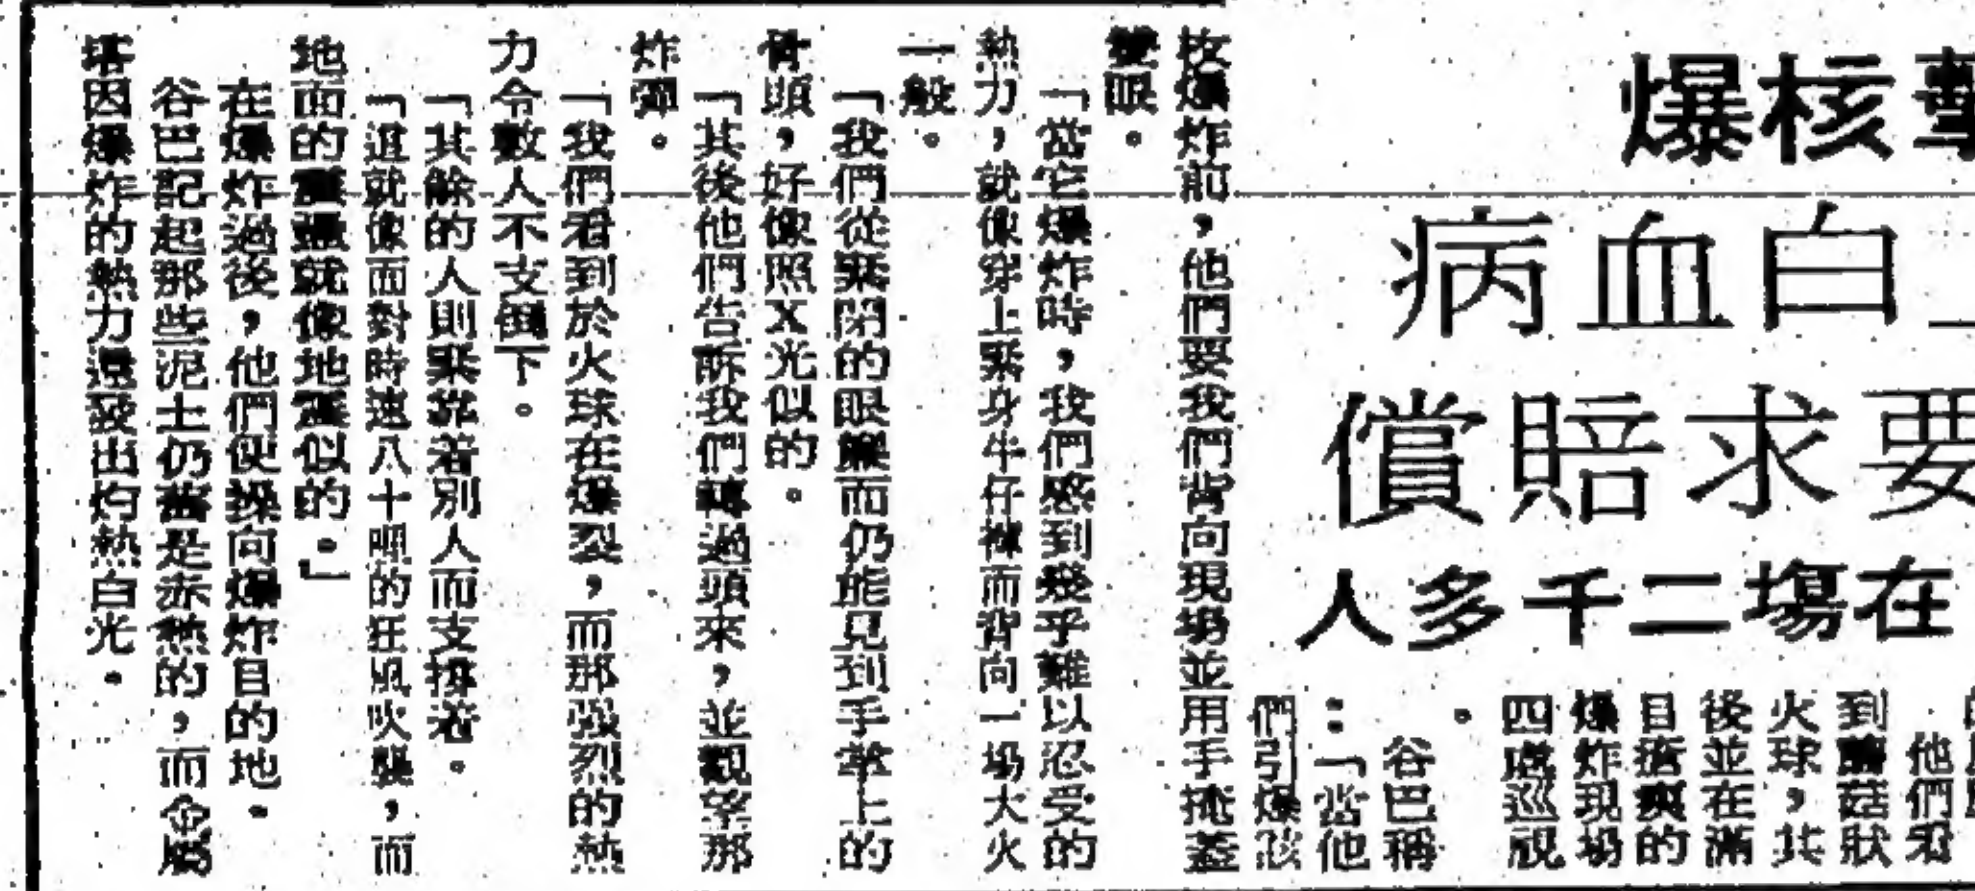 核爆
白血病
要求賠償
在場二千多人
他們看
到蘑菇狀
火球，其
後並在滿
目瘡痍的
爆炸現場
四處巡視
。
谷巴稱
：「當他
們引爆該
枚爆炸前，他們要我們背向現場並用手掩蓋
雙眼。
「當它爆炸時，我們感到幾乎難以忍受的
熱力，就像穿上緊身牛仔褲而背向一場大火
一般。
「我們從緊閉的眼簾而仍能見到手掌上的
骨頭，好像照X光似的。
「其後他們告訴我們轉過頭來，並觀望那
炸彈。
「我們看到於火球在爆裂，而那强烈的熱
力令數人不支倒下。
「其餘的人則緊靠着別人而支撐着。
「這就像面對時速八十哩的狂風吹襲，而
地面的震盪就像地震似的。」
在爆炸過後，他們便操向爆炸目的地。
谷巴記起那些泥土仍舊是赤熱的，而金屬
塔因爆炸的熱力還發出灼熱白光。